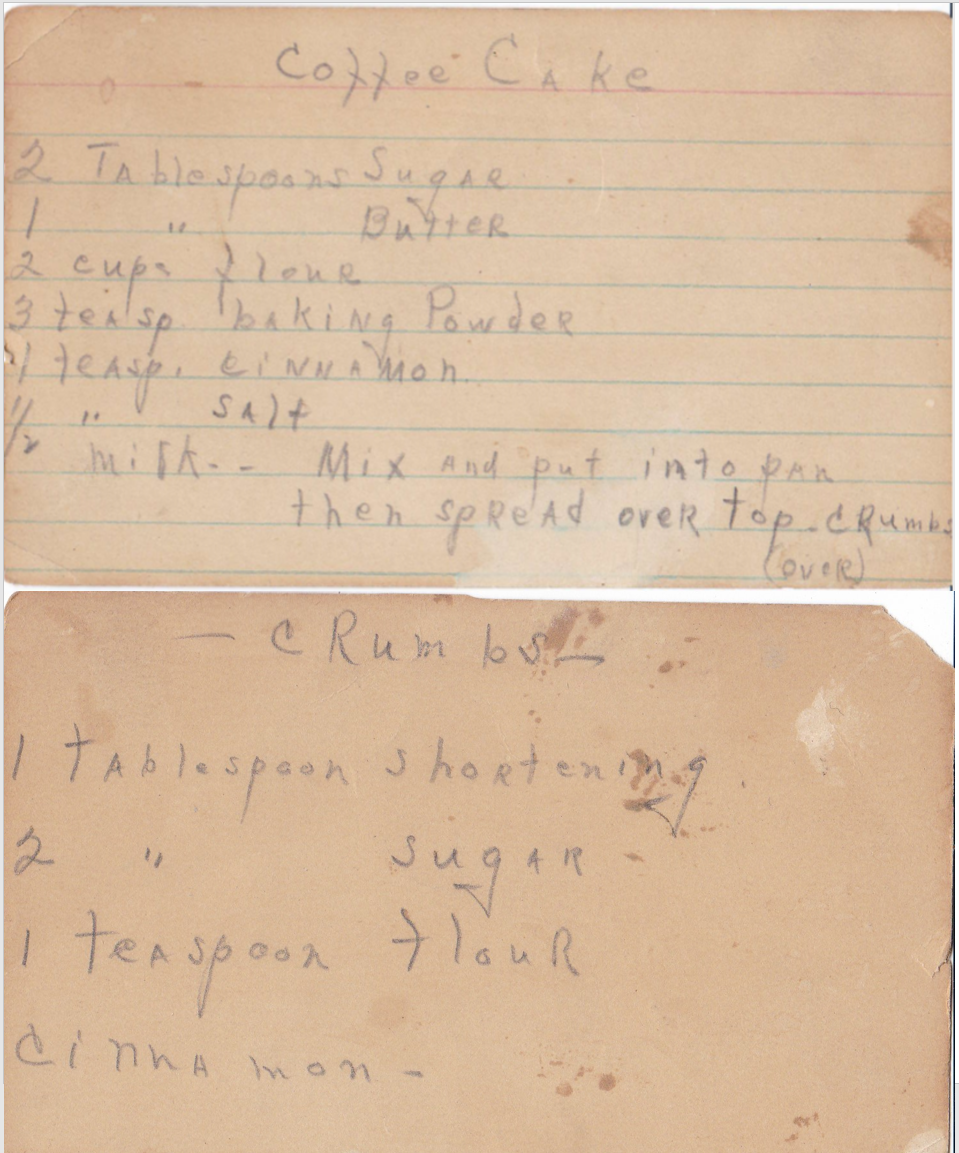 Coffee Cake
2 Tablespoons Sugar
1 " Butter
2 cups flour
3 teasp baking Powder
1 teasp. cinnamon.
1/2 " Salt
milk-- Mix and put into pan
then spread over top-crumbs
(over)
— Crumbs —
1 tablespoon shortening.
2 " sugar -
1 teaspoon flour
Cinnamon -